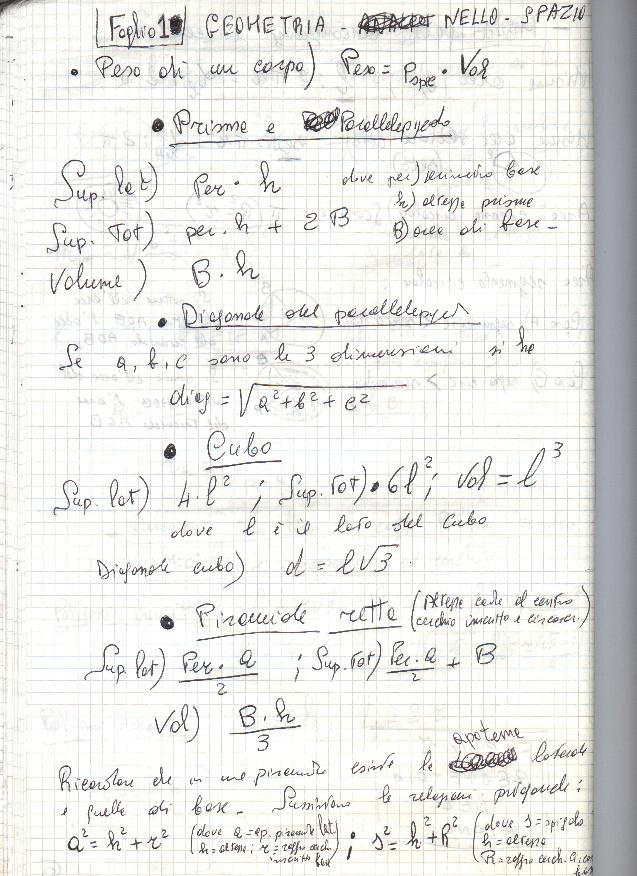 Foglio 1 GEOMETRIA - NELLO - SPAZIO
• Peso di un corpo) Peso = Pspe • Vol
• Prisma e Parallelepipedo
Sup. lat) Per • h dove per) perimetro base
h) altezza prisma
Sup. Tot) per. h + 2 B B) area di base -
Volume) B • h
• Diagonale del parallelepipedo
Se a, b, c sono le 3 dimensioni si ha
diag = √a² + b² + c²
• Cubo
Sup. lat) 4 • l² ; Sup. Tot) • 6l² ; Vol = l³
dove l è il lato del Cubo
Diagonale cubo) d = l√3
• Piramide retta (Altezza cade al centro
cerchio inscritto e circoscr.)
Sup. lat) Per • a / 2 ; Sup. Tot) Per. a / 2 + B
Vol) B • h / 3
apotema
Ricordare che in una piramide esiste la laterale
e quella di base - Sussistono le relazioni :
a² = h² + r² (dove a = ap. piramide lat
h = altezza ; r = raggio cerch.
inscritto base) ; s² = h² + R² (dove s = spigolo
h = altezza
R = raggio cerch.